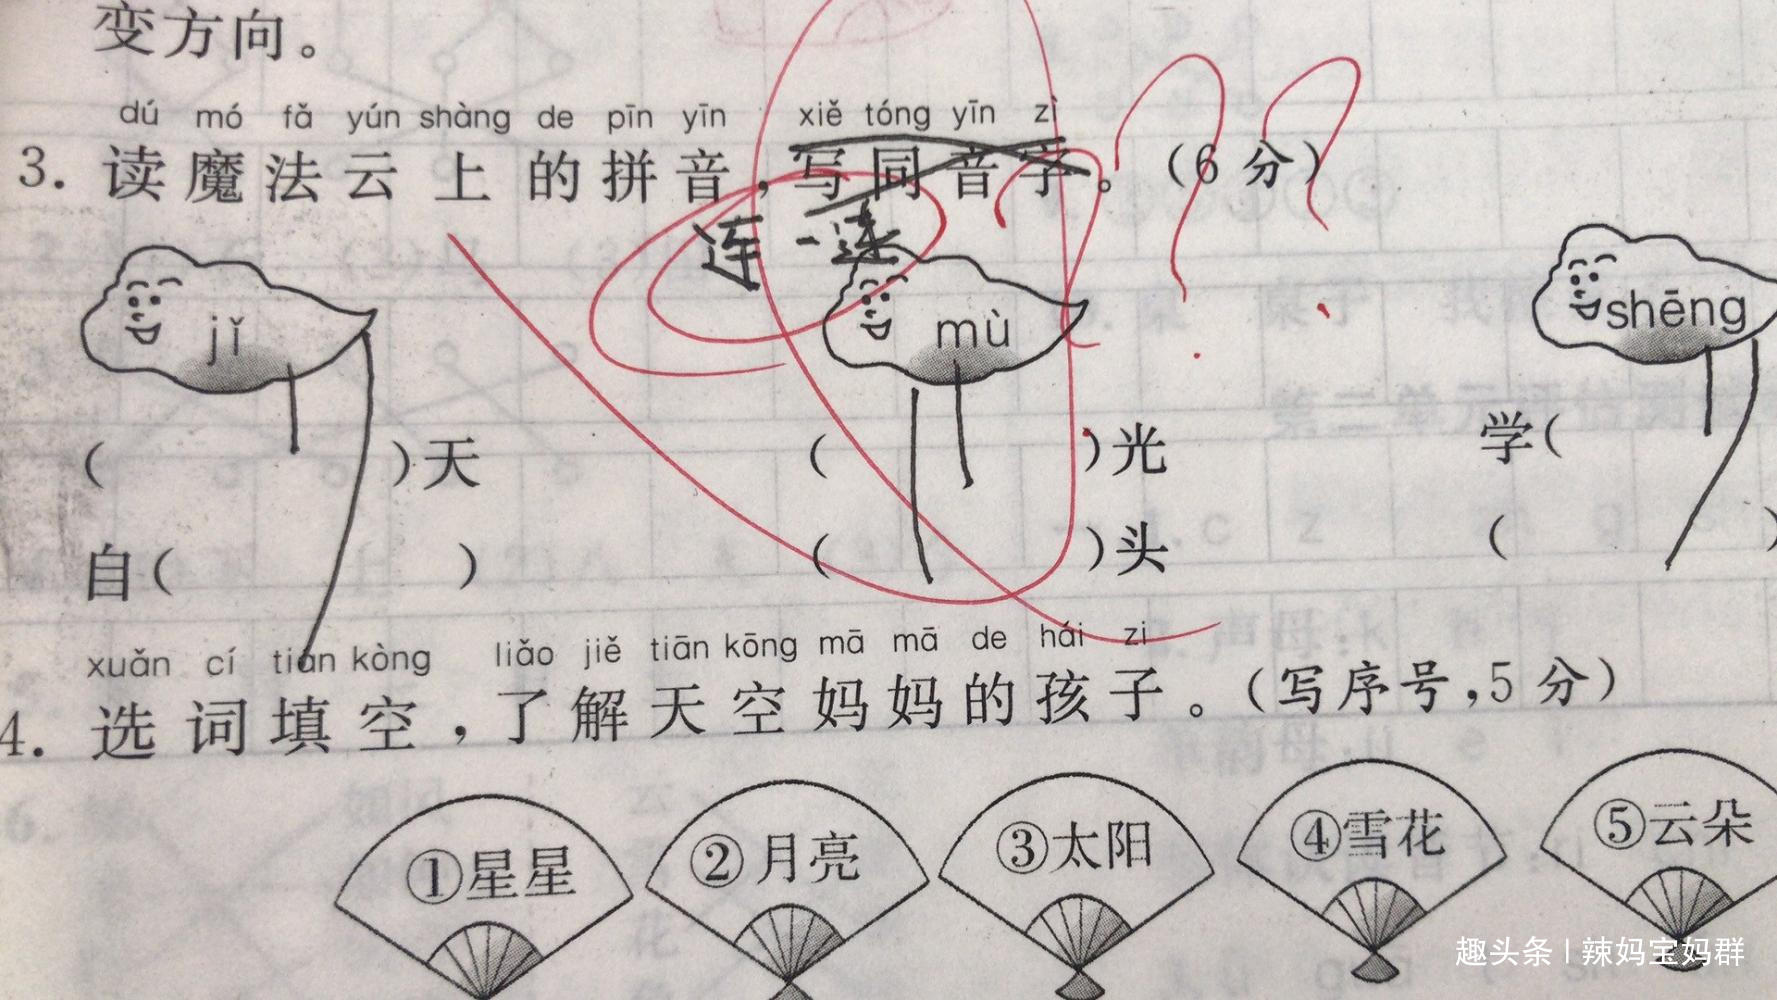 变方向。
dú mó fǎ yún shàng de pīn yīn xiě tóng yīn zì
3. 读魔法云上的拼音,写同音字。(6分)
连一连
jǐ mù shēng
( )天 ( )光 学(
自( ) ( )头 ( )
xuǎn cí tián kòng liǎo jiě tiān kōng mā mā de hái zi
4. 选词填空,了解天空妈妈的孩子。(写序号,5分)
①星星 ②月亮 ③太阳 ④雪花 ⑤云朵
趣头条 | 辣妈宝妈群